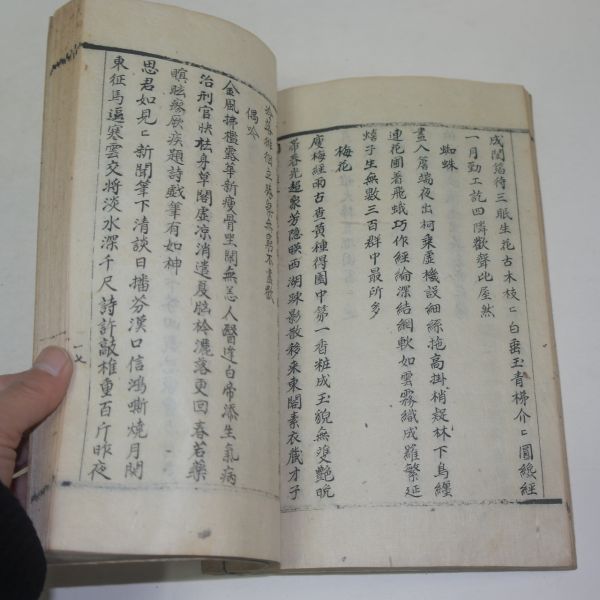 成閣篇待三眠生花古木枝〻白垂玉青梯介〻圓縱經
一月勤工訖四隣歡聲此屋然
蜘蛛
晝入簷端夜出柯乘虛機設細絲拖高掛梢疑林下鳥纏
連花圃着飛蛾巧作經綸深結網軟如雲霧織成羅繁延
子生無數三百群中最所多
梅花
庾梅經雨古査黃種得園中第一香粧成玉貌無雙艶晩
帶春光超衆芳隱暎西湖踈影散移來東閣素衣藏才子
偶吟
金風拂檻露華新瘦骨聖關無恙人醫逢白帝添生氣病
治刑官快祛身草閣虛凉消遣夏牕衿灑落更回春若藥
瞑眩瘳厥疾題詩戲筆有如神
思君如見〻新聞筆下清談日播芬漢口信鴻嘶燒月関
東征馬逼寒雲交將淡水深千尺詩許敲椎重百斤昨夜
一七